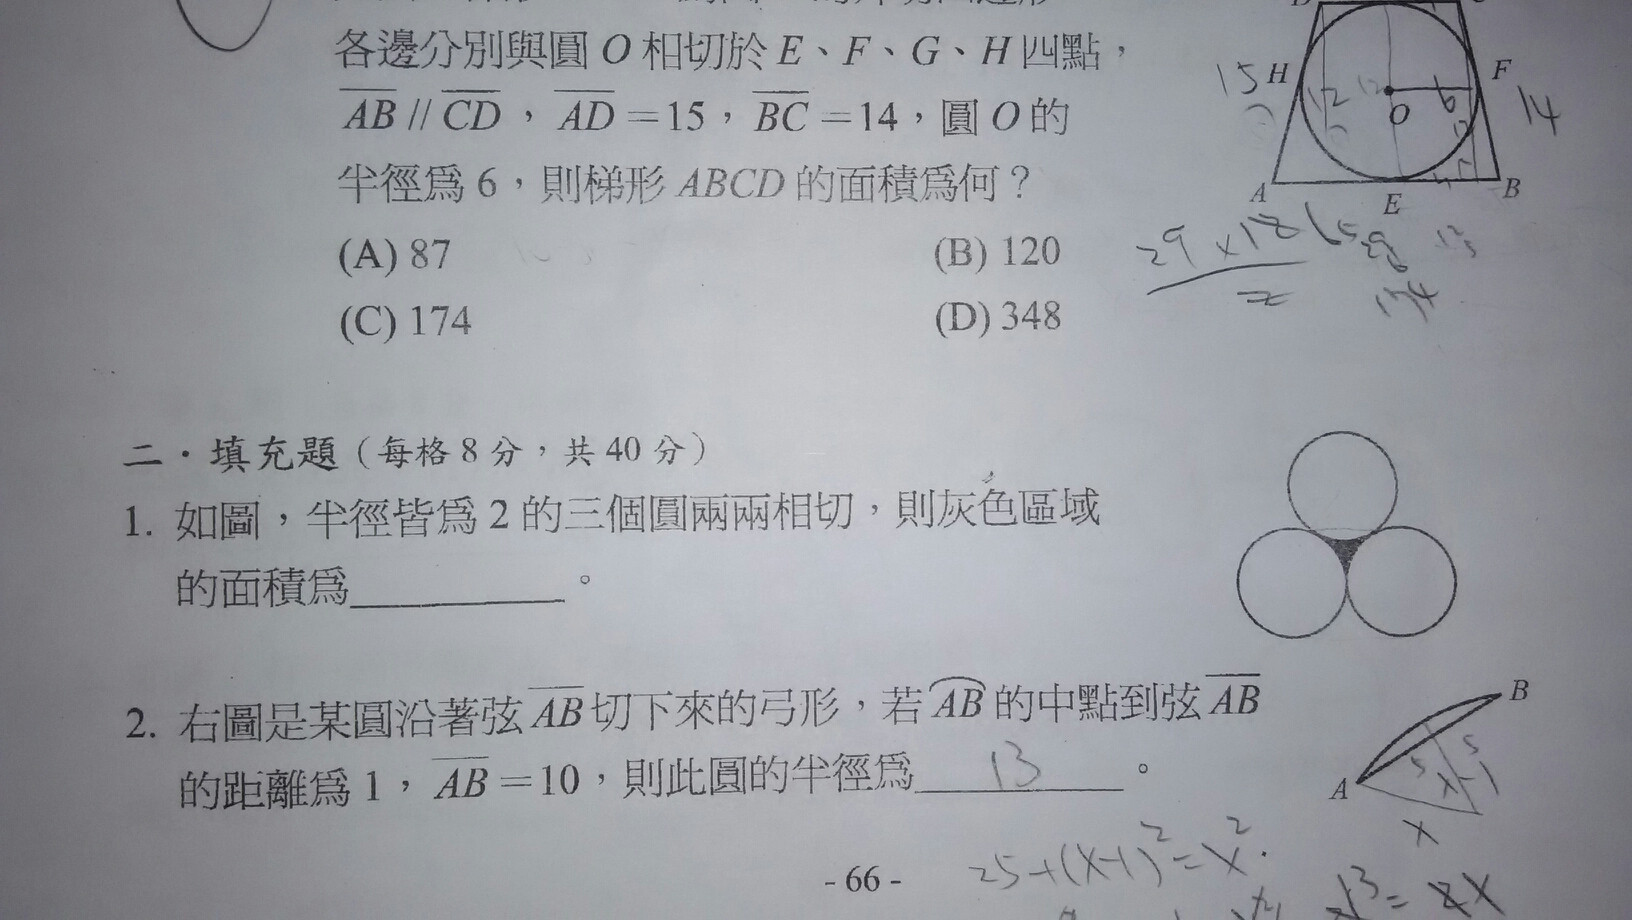 各邊分別與圓 O 相切於 E、F、G、H 四點，
AB // CD，AD＝15，BC＝14，圓 O 的
半徑為 6，則梯形 ABCD 的面積為何？
(A) 87
(B) 120
(C) 174
(D) 348
15
H
F
14
12
6
O
A
E
B
29 × 12
2
二．填充題（每格 8 分，共 40 分）
1. 如圖，半徑皆為 2 的三個圓兩兩相切，則灰色區域
的面積為 。
2. 右圖是某圓沿著弦 AB 切下來的弓形，若 AB 的中點到弦 AB
的距離為 1，AB＝10，則此圓的半徑為 13 。
B
5
5
x-1
A
x
25+(x-1)²=x²
- 66 -